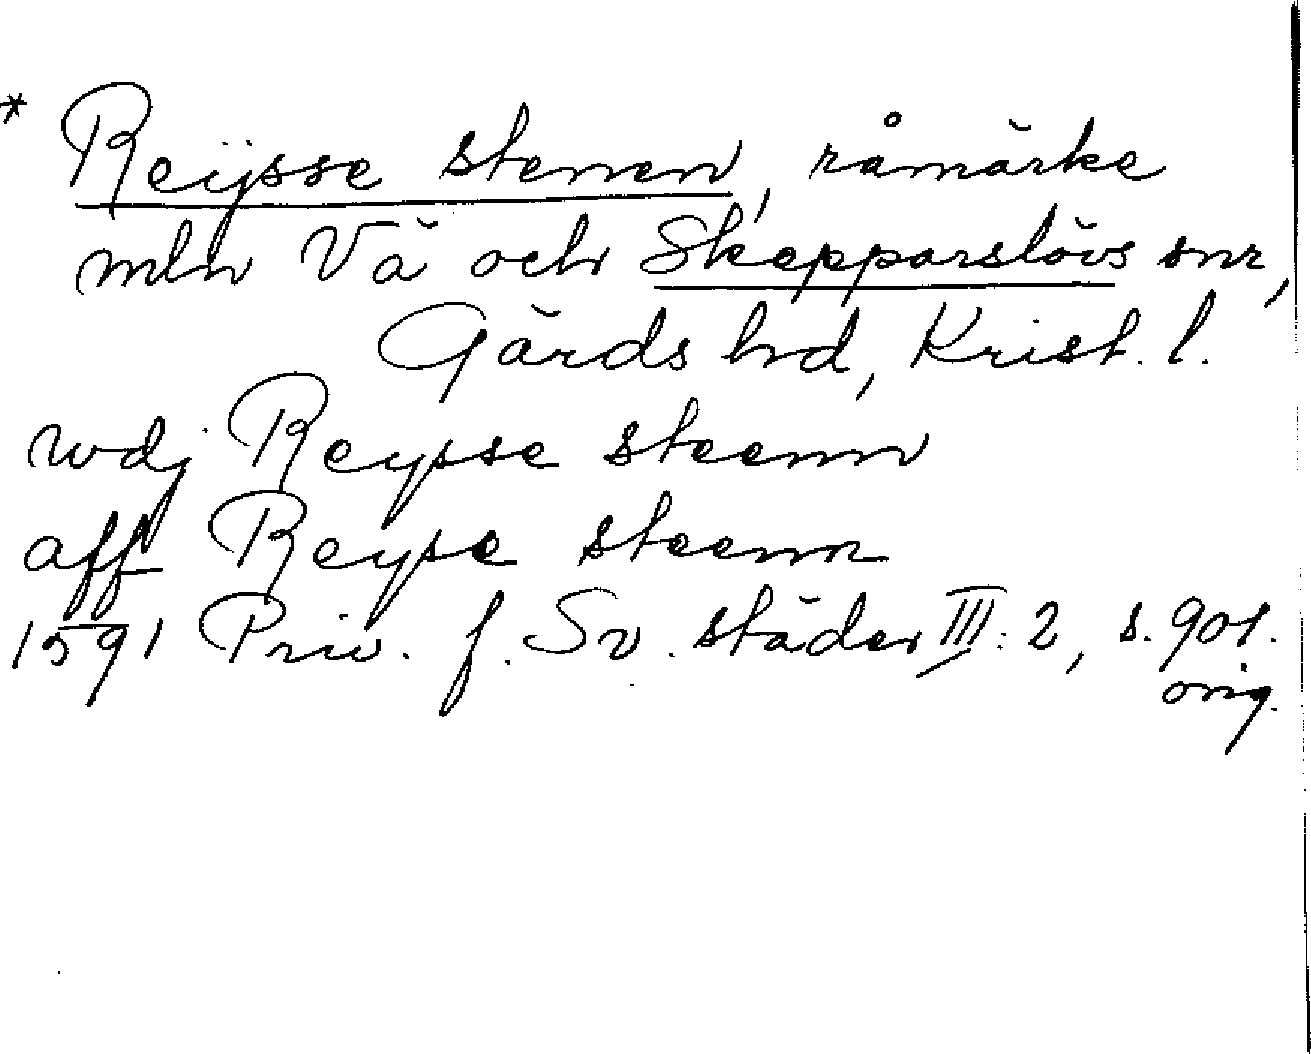 * Reÿsse stenen, råmärke
mln Vä och Skepparslövs snr,
Gärds hd, Krist. l.
wdj Reysse steenn
aff Reyse steenn
1591 Priv. f. Sv. städer III: 2, s. 901.
orig.